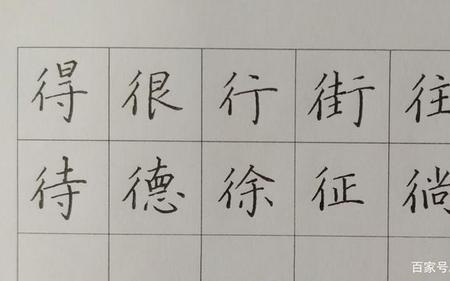 得很行街往
待德徐征徜
百家号